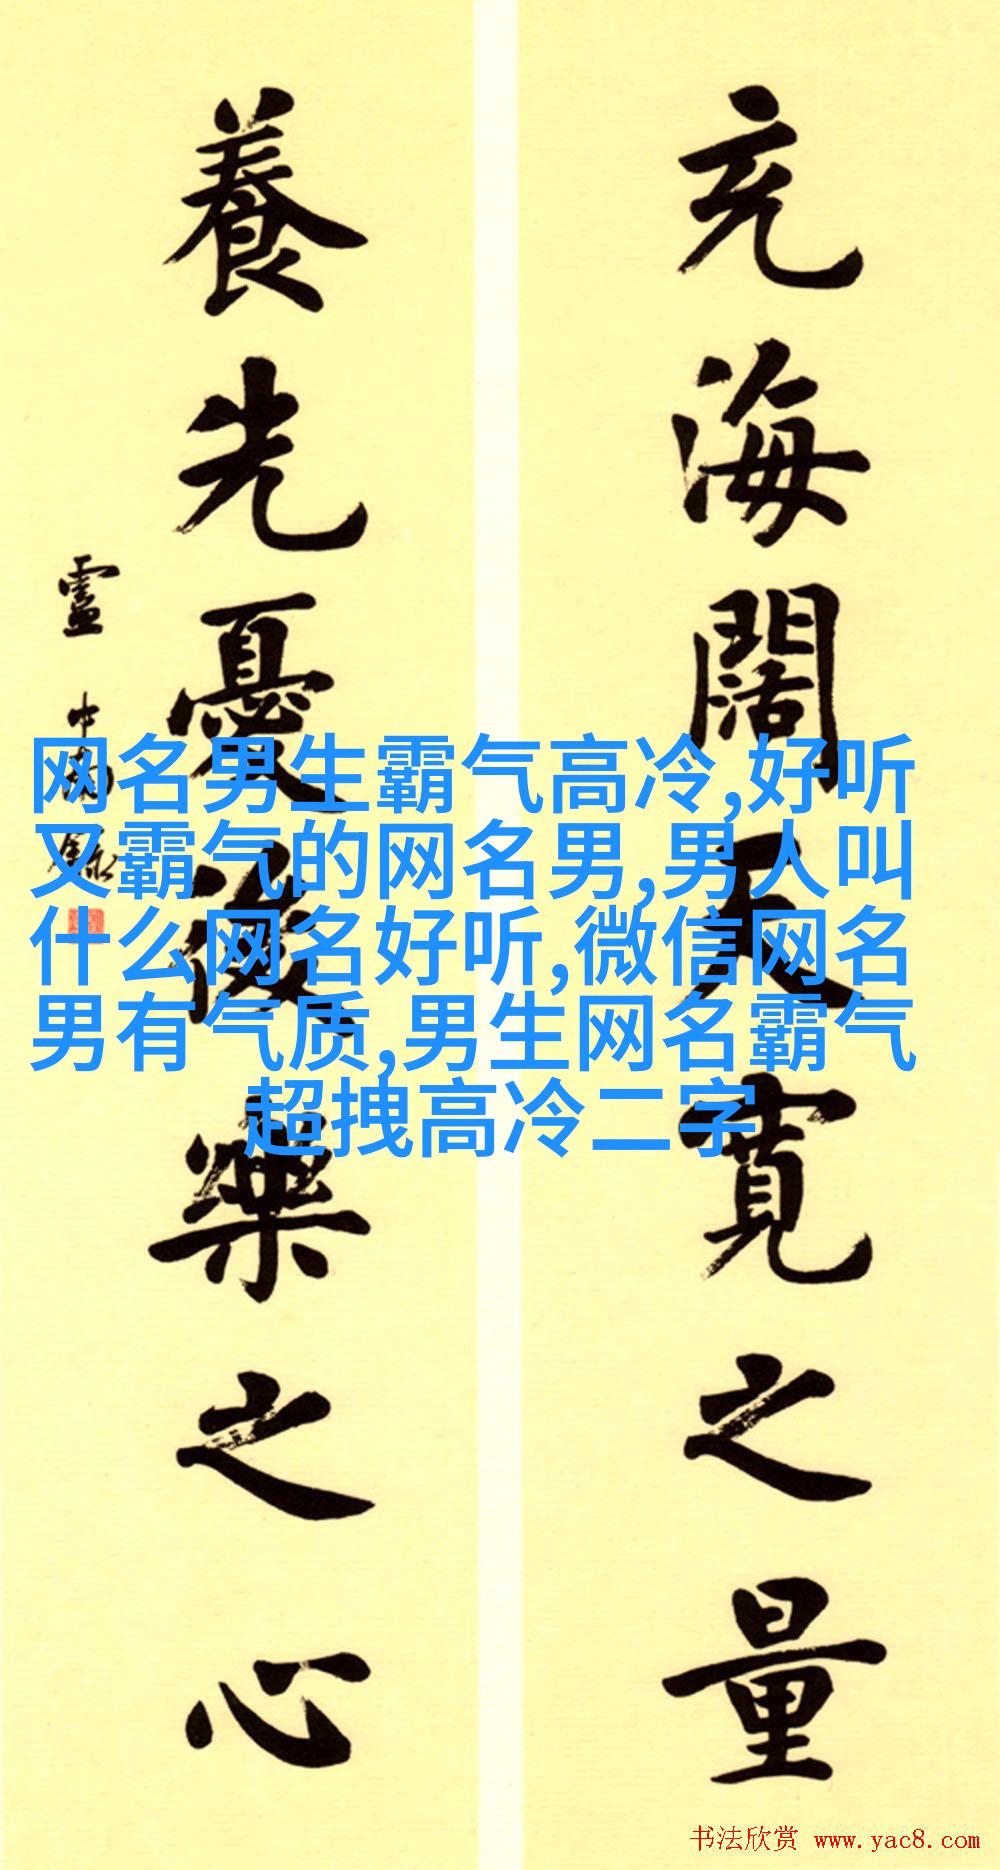 充海闊天寬之量
養先憂後樂之心
盧中南錄
网名男生霸气高冷,好听
又霸气的网名男,男人叫
什么网名好听,微信网名
男有气质,男生网名霸气
超拽高冷二字
书法欣赏 www.yac8.com